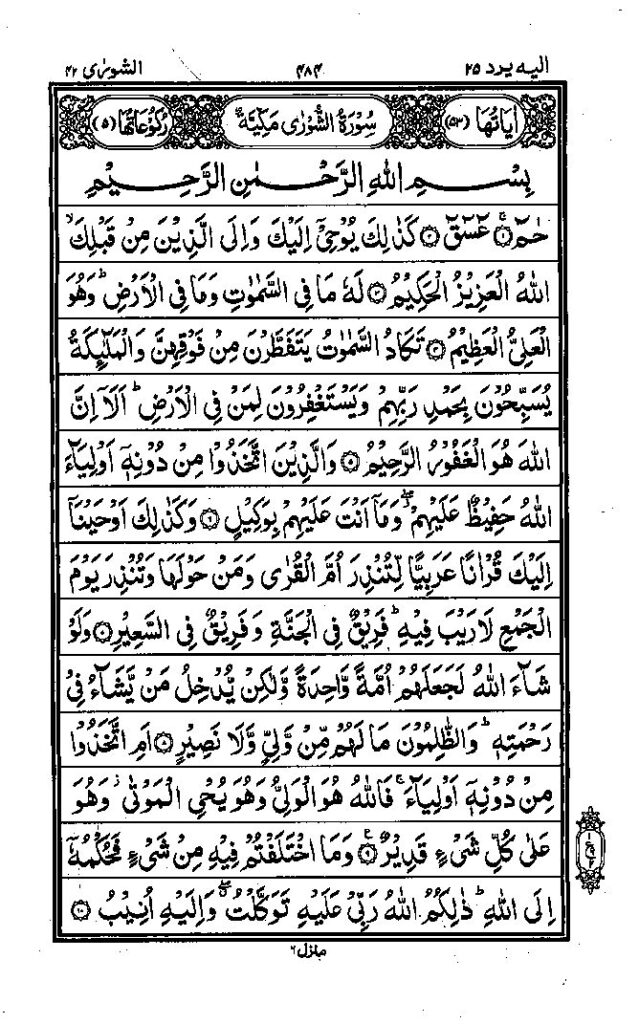 اليه يرد ٢٥ ٤٨٤ الشورى ٤٢
اٰيَاتُهَا (٥٣) سُوْرَةُ الشُّوْرٰى مَكِّيَّةٌ رُكُوْعَاتُهَا (٥)
بِسْمِ اللّٰهِ الرَّحْمٰنِ الرَّحِيْمِ
حٰمٓ ۚ‏﴿١﴾ عٓسٓقٓ ﴿٢﴾ كَذٰلِكَ يُوْحِيْٓ اِلَيْكَ وَاِلَى الَّذِيْنَ مِنْ قَبْلِكَ ۙ
اللّٰهُ الْعَزِيْزُ الْحَكِيْمُ ﴿٣﴾ لَهٗ مَا فِي السَّمٰوٰتِ وَمَا فِي الْاَرْضِ ؕ وَهُوَ
الْعَلِيُّ الْعَظِيْمُ ﴿٤﴾ تَكَادُ السَّمٰوٰتُ يَتَفَطَّرْنَ مِنْ فَوْقِهِنَّ وَالْمَلٰٓئِكَةُ
يُسَبِّحُوْنَ بِحَمْدِ رَبِّهِمْ وَيَسْتَغْفِرُوْنَ لِمَنْ فِي الْاَرْضِ ؕ اَلَاۤ اِنَّ
اللّٰهَ هُوَ الْغَفُوْرُ الرَّحِيْمُ ﴿٥﴾ وَالَّذِيْنَ اتَّخَذُوْا مِنْ دُوْنِهٖۤ اَوْلِيَآءَ
اللّٰهُ حَفِيْظٌ عَلَيْهِمْ ۖ وَمَاۤ اَنْتَ عَلَيْهِمْ بِوَكِيْلٍ ﴿٦﴾ وَكَذٰلِكَ اَوْحَيْنَاۤ
اِلَيْكَ قُرْاٰنًا عَرَبِيًّا لِّتُنْذِرَ اُمَّ الْقُرٰى وَمَنْ حَوْلَهَا وَتُنْذِرَ يَوْمَ
الْجَمْعِ لَا رَيْبَ فِيْهِ ؕ فَرِيْقٌ فِي الْجَنَّةِ وَفَرِيْقٌ فِي السَّعِيْرِ ﴿٧﴾ وَلَوْ
شَآءَ اللّٰهُ لَجَعَلَهُمْ اُمَّةً وَّاحِدَةً وَّلٰكِنْ يُّدْخِلُ مَنْ يَّشَآءُ فِيْ
رَحْمَتِهٖ ؕ وَالظّٰلِمُوْنَ مَا لَهُمْ مِّنْ وَّلِيٍّ وَّلَا نَصِيْرٍ ﴿٨﴾ اَمِ اتَّخَذُوْا
مِنْ دُوْنِهٖۤ اَوْلِيَآءَ ۚ فَاللّٰهُ هُوَ الْوَلِيُّ وَهُوَ يُحْيِ الْمَوْتٰى ؗ وَهُوَ
عَلٰى كُلِّ شَيْءٍ قَدِيْرٌ ﴿٩﴾ وَمَا اخْتَلَفْتُمْ فِيْهِ مِنْ شَيْءٍ فَحُكْمُهٗۤ
اِلَى اللّٰهِ ؕ ذٰلِكُمُ اللّٰهُ رَبِّيْ عَلَيْهِ تَوَكَّلْتُ ۖ وَاِلَيْهِ اُنِيْبُ ﴿١٠﴾
منزل ٦